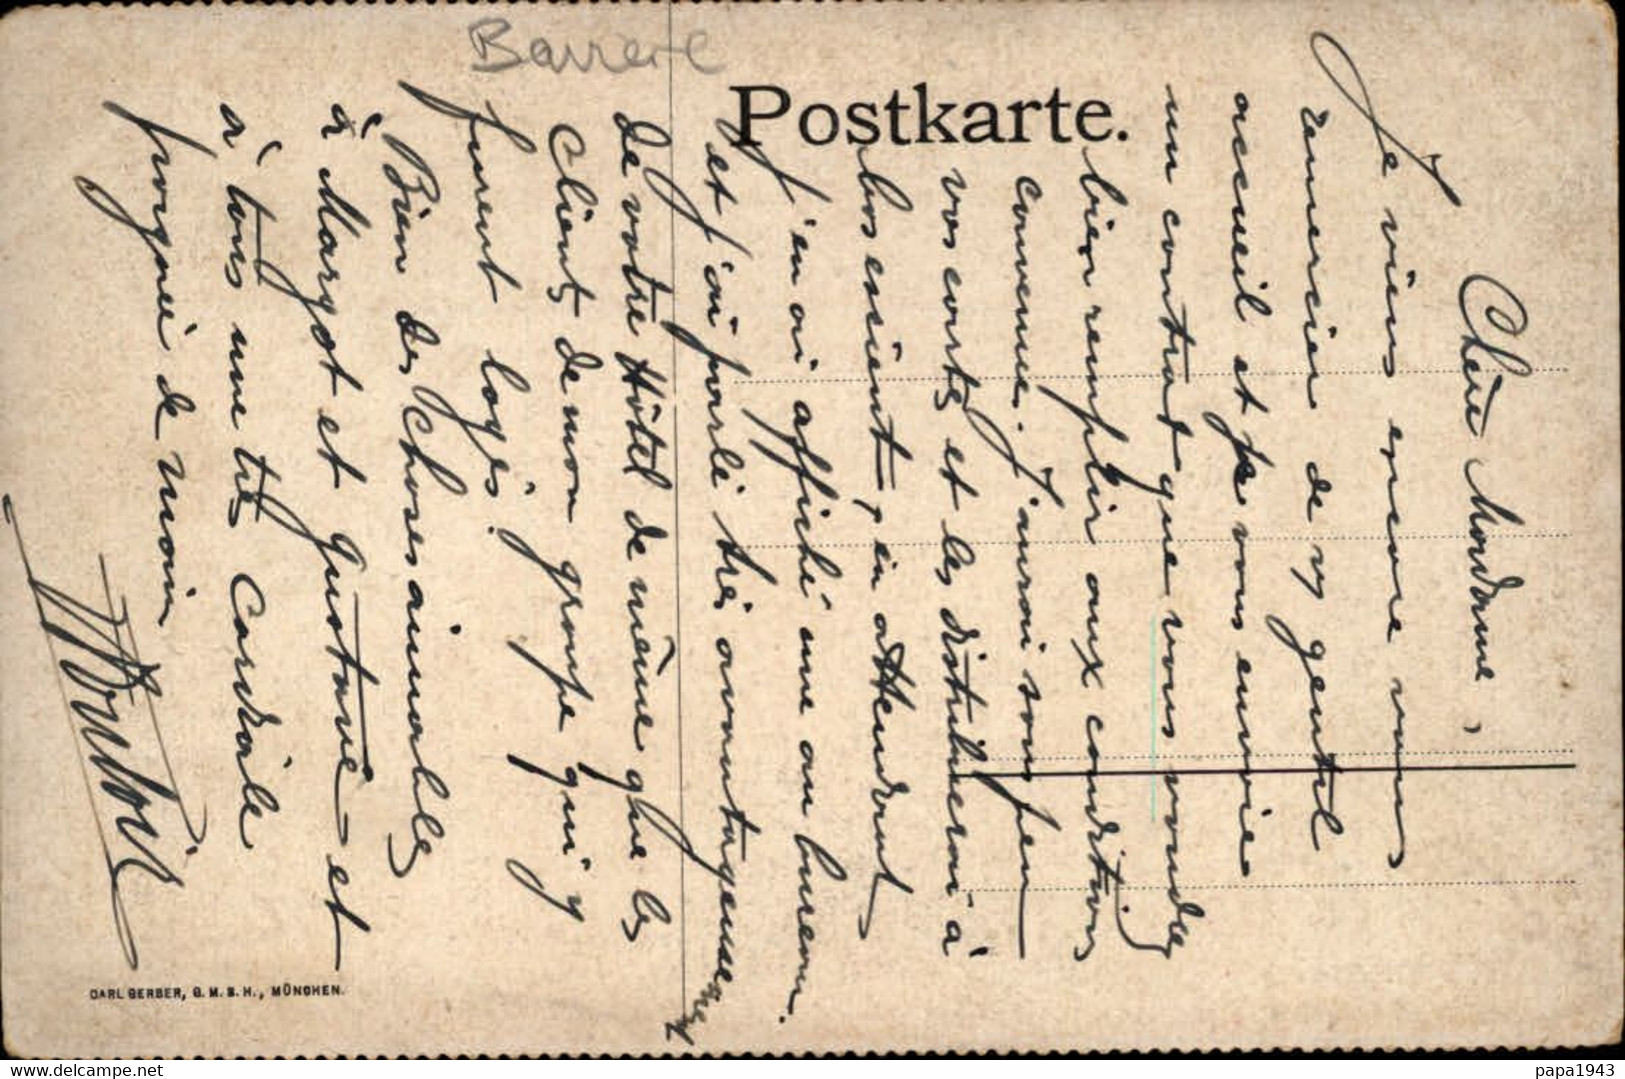 Barrere
Postkarte.
Chère Madame,
Je viens encore vous
remercier de vs gentil
accueil et je vous envoie
un contrat que vous voudrez
bien remplir aux conditions
convenue. J'aurai sous peu
vos cartes et les distribuerai à
bos essient, en attendant
j'en ai affiché une au bureau.
et j'ai parlé très avantageusement
de votre Hôtel de même que les
clients de mon groupe qui y
furent logés.
Bien des choses aimables
à Margot et Gustave et
à tous une très cordiale
poignée de main
CARL GERBER, G.M.B.H., MÜNCHEN.
delcampe.net
papa1943